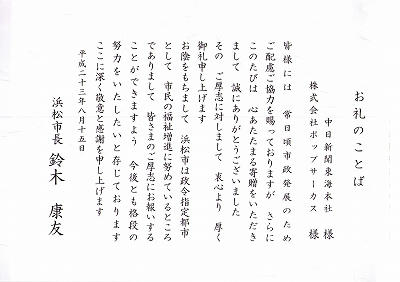 お礼のことば
中日新聞東海本社 様
株式会社ポップサーカス 様
皆様には 常日頃市政発展のため
ご配慮ご協力を賜っておりますが さらに
このたびは 心あたたまる寄贈をいただき
まして 誠にありがとうございました
その ご厚志に対しまして 衷心より 厚く
御礼申し上げます
お陰をもちまして 浜松市は政令指定都市
として 市民の福祉増進に努めているところ
でありまして 皆さまのご厚志にお報いする
ことができますよう 今後とも格段の
努力をいたしたいと存じております
ここに深く敬意と感謝を申し上げます
平成二十三年八月十五日
浜松市長 鈴木 康友